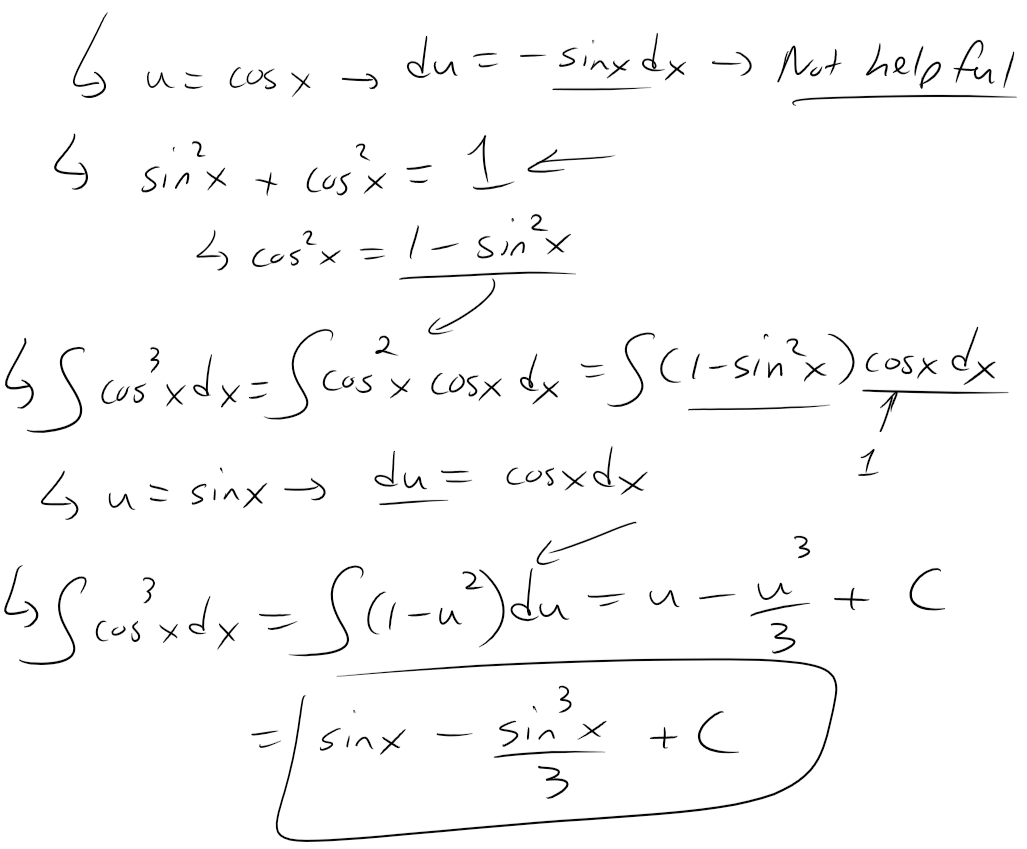 ↳ u = cos x → du = - sinx dx → Not helpful
↳ sin²x + cos²x = 1 ←
↳ cos²x = 1 - sin²x
↳ ∫ cos³x dx = ∫ cos²x cosx dx = ∫ (1-sin²x) cosx dx
1
↳ u = sinx → du = cosx dx
↳ ∫ cos³x dx = ∫ (1-u²) du = u - u³/3 + C
= sinx - sin³x/3 + C